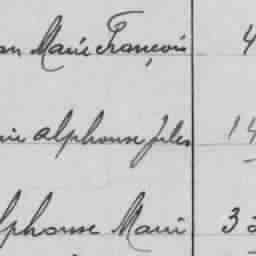 an Marie François 4
rie alphonse jules 14
lphonse Marie 32